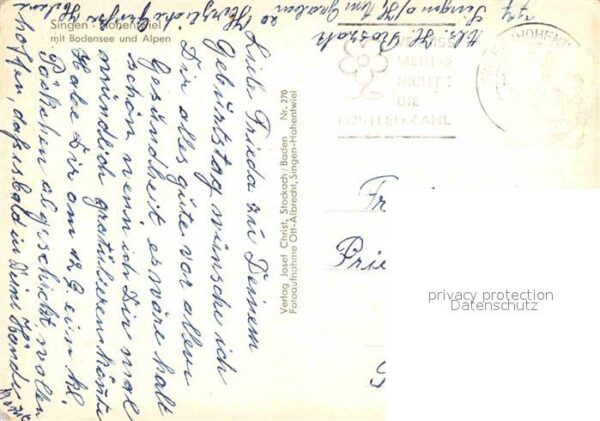 Singen - Hohentwiel
mit Bodensee und Alpen
Liebe Frieda zu Deinem
Geburtstag wünsche ich
Dir alles gute vor allem
Gesundheit es wäre halt
schön wenn ich Dir mal
mündlich gratulieren könnte
Habe Dir am 12.9 ein kl.
Päckchen abgeschickt wollen
hoffen, daß es bald in Deine Hände
Herzliche Grüße
Abs. H.
Singen a/H. Am Graben
20
Verlag Josef Christ, Stockach/Baden Nr. 270
Fotoaufnahme Ott-Albrecht, Singen-Hohentwiel
MEIN
NICHT:
DIE
POSTLEITZAHL
HOHENT
Fr
Frie
privacy protection
Datenschutz